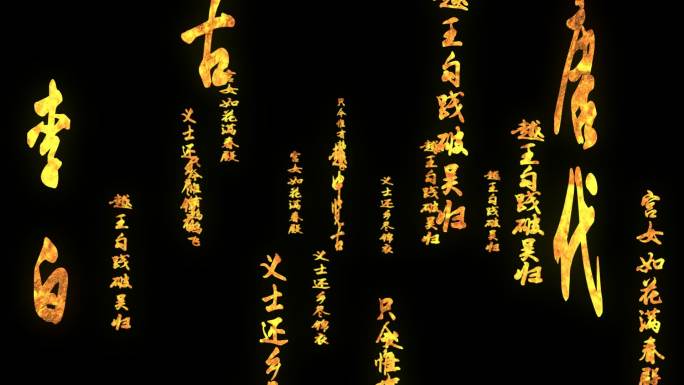 宫女如花满春殿
唐代
越王勾践破吴归
越王勾践破吴归
越王勾践破吴归
越王勾践破吴归
义士还乡尽锦衣
只今惟
中览古
义士还乡尽锦衣
宫女如花满春殿
义士还乡
宫女如花满春殿
古
义士还
飞
越王勾践破吴归
李白